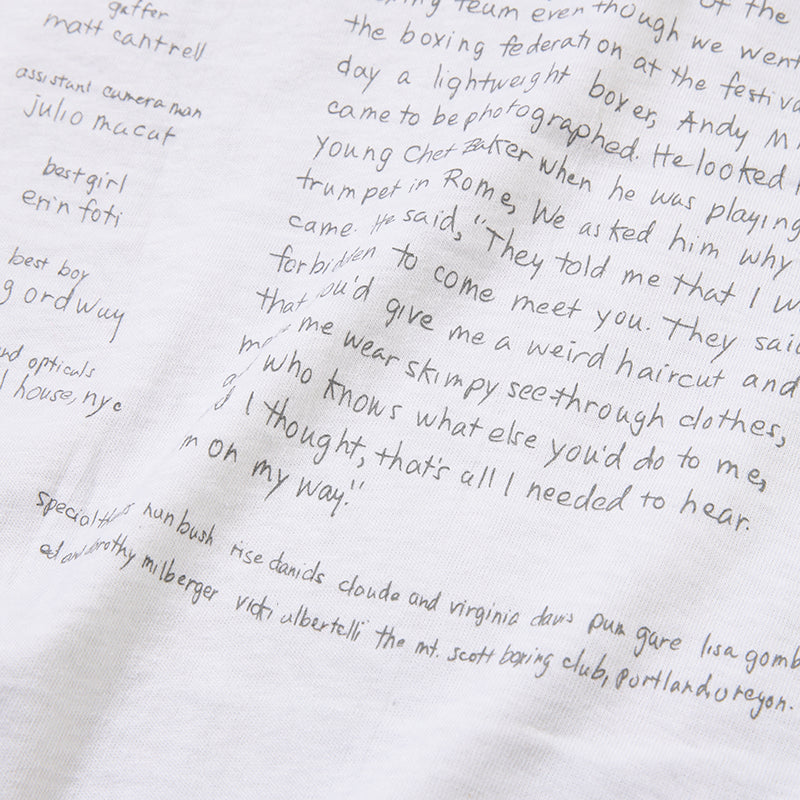 gaffer
matt cantrell
assistant camera man
julio macat
best girl
erin foti
best boy
g ordway
nd opticals
l house, nyc
team even though we went
the boxing federation at the festiva
day a lightweight boxer, Andy M
came to be photographed. He looked
young Chet Baker when he was playing
trumpet in Rome, We asked him why
came. He said, "They told me that I w
forbidden to come meet you. They said
that you'd give me a weird haircut and
me wear skimpy see-through clothes,
who knows what else you'd do to me,
I thought, that's all I needed to hear.
m on my way."
special nan bush rise daniels claude and virginia davis pam gare lisa gomb
ed and dorothy milberger vicki albertelli the mt. scott boxing club, portland, oregon.